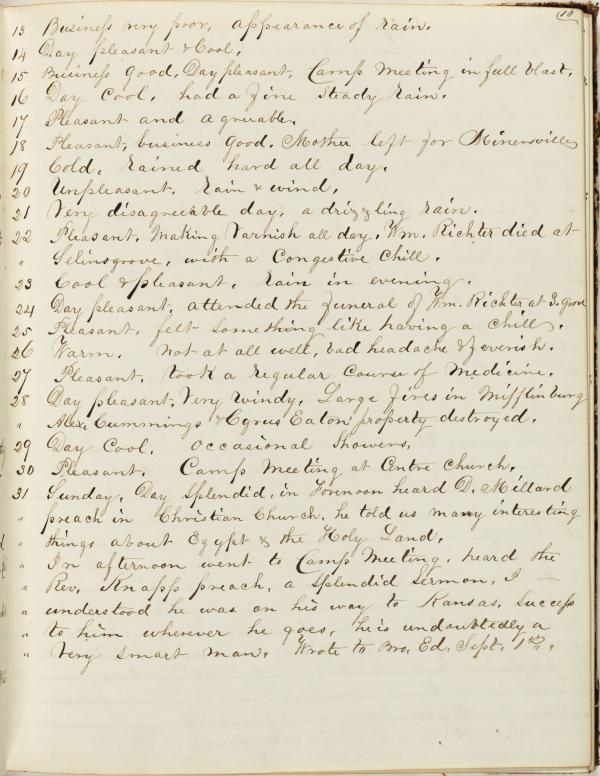 10
13 Business very poor, appearance of rain.
14 Day pleasant & Cool.
15 Business good, Day pleasant, Camp Meeting in full blast.
16 Day Cool, had a fine steady rain.
17 Pleasant and agreeable.
18 Pleasant, business good. Mother left for Minersville
19 Cold, rained hard all day.
20 Unpleasant. rain & wind.
21 Very disagreeable day, a drizzling rain.
22 Pleasant. Making Varnish all day. Wm. Richter died at
" Selinsgrove, with a Congestive Chill.
23 Cool & pleasant. rain in evening.
24 Day pleasant, attended the funeral of Wm. Richter at S. Grove
25 Pleasant. felt something like having a chill.
26 Warm. not at all well, bad headache & feverish.
27 Pleasant. took a regular Course of Medicine.
28 Day pleasant, Very Windy, Large fires in Mifflinburg
" Alex. Cummings & Cyrus Eaton property destroyed.
29 Day Cool. Occasional Showers.
30 Pleasant. Camp Meeting at Centre Church.
31 Sunday. Day Splendid, in Forenoon heard D. Millard
" preach in Christian Church. he told us many interesting
" things about Egypt & the Holy Land.
" In afternoon went to Camp Meeting, heard the
" Rev. Knapp preach, a splendid Sermon. I
" understood he was on his way to Kansas. Success
" to him wherever he goes, he is undoubtedly a
" Very smart man. Wrote to Bro. Ed. Sept. 1st.